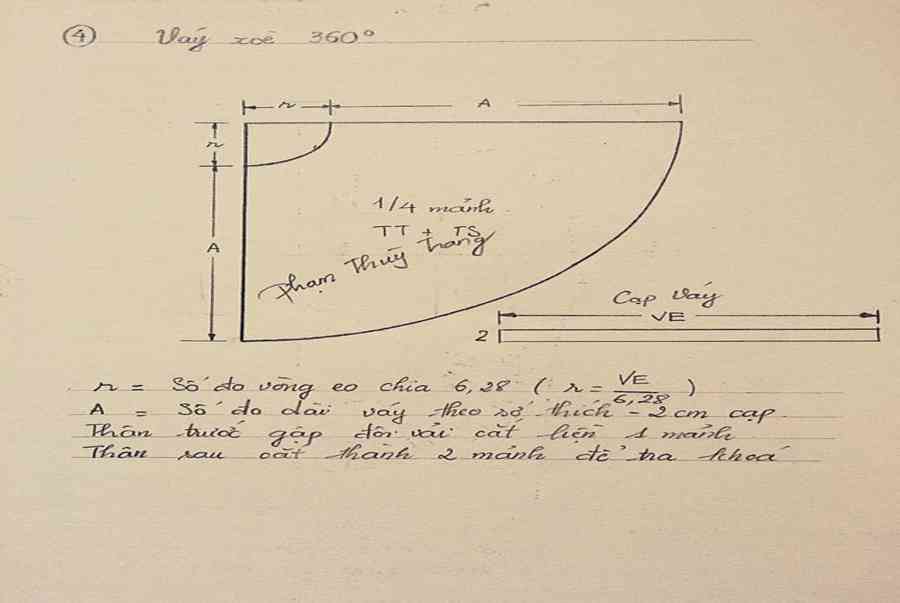 ④ Váy xoè 360°
r A
r
1/4 mảnh
TT + TS
Phạm Thùy Trang
A
Cạp váy
VE
2
r = Số đo vòng eo chia 6,28 ( r = VE/6,28 )
A = Số đo dài váy theo sở thích - 2 cm cạp.
Thân trước gập đôi vải cắt liền 1 mảnh
Thân sau cắt thành 2 mảnh để tra khoá